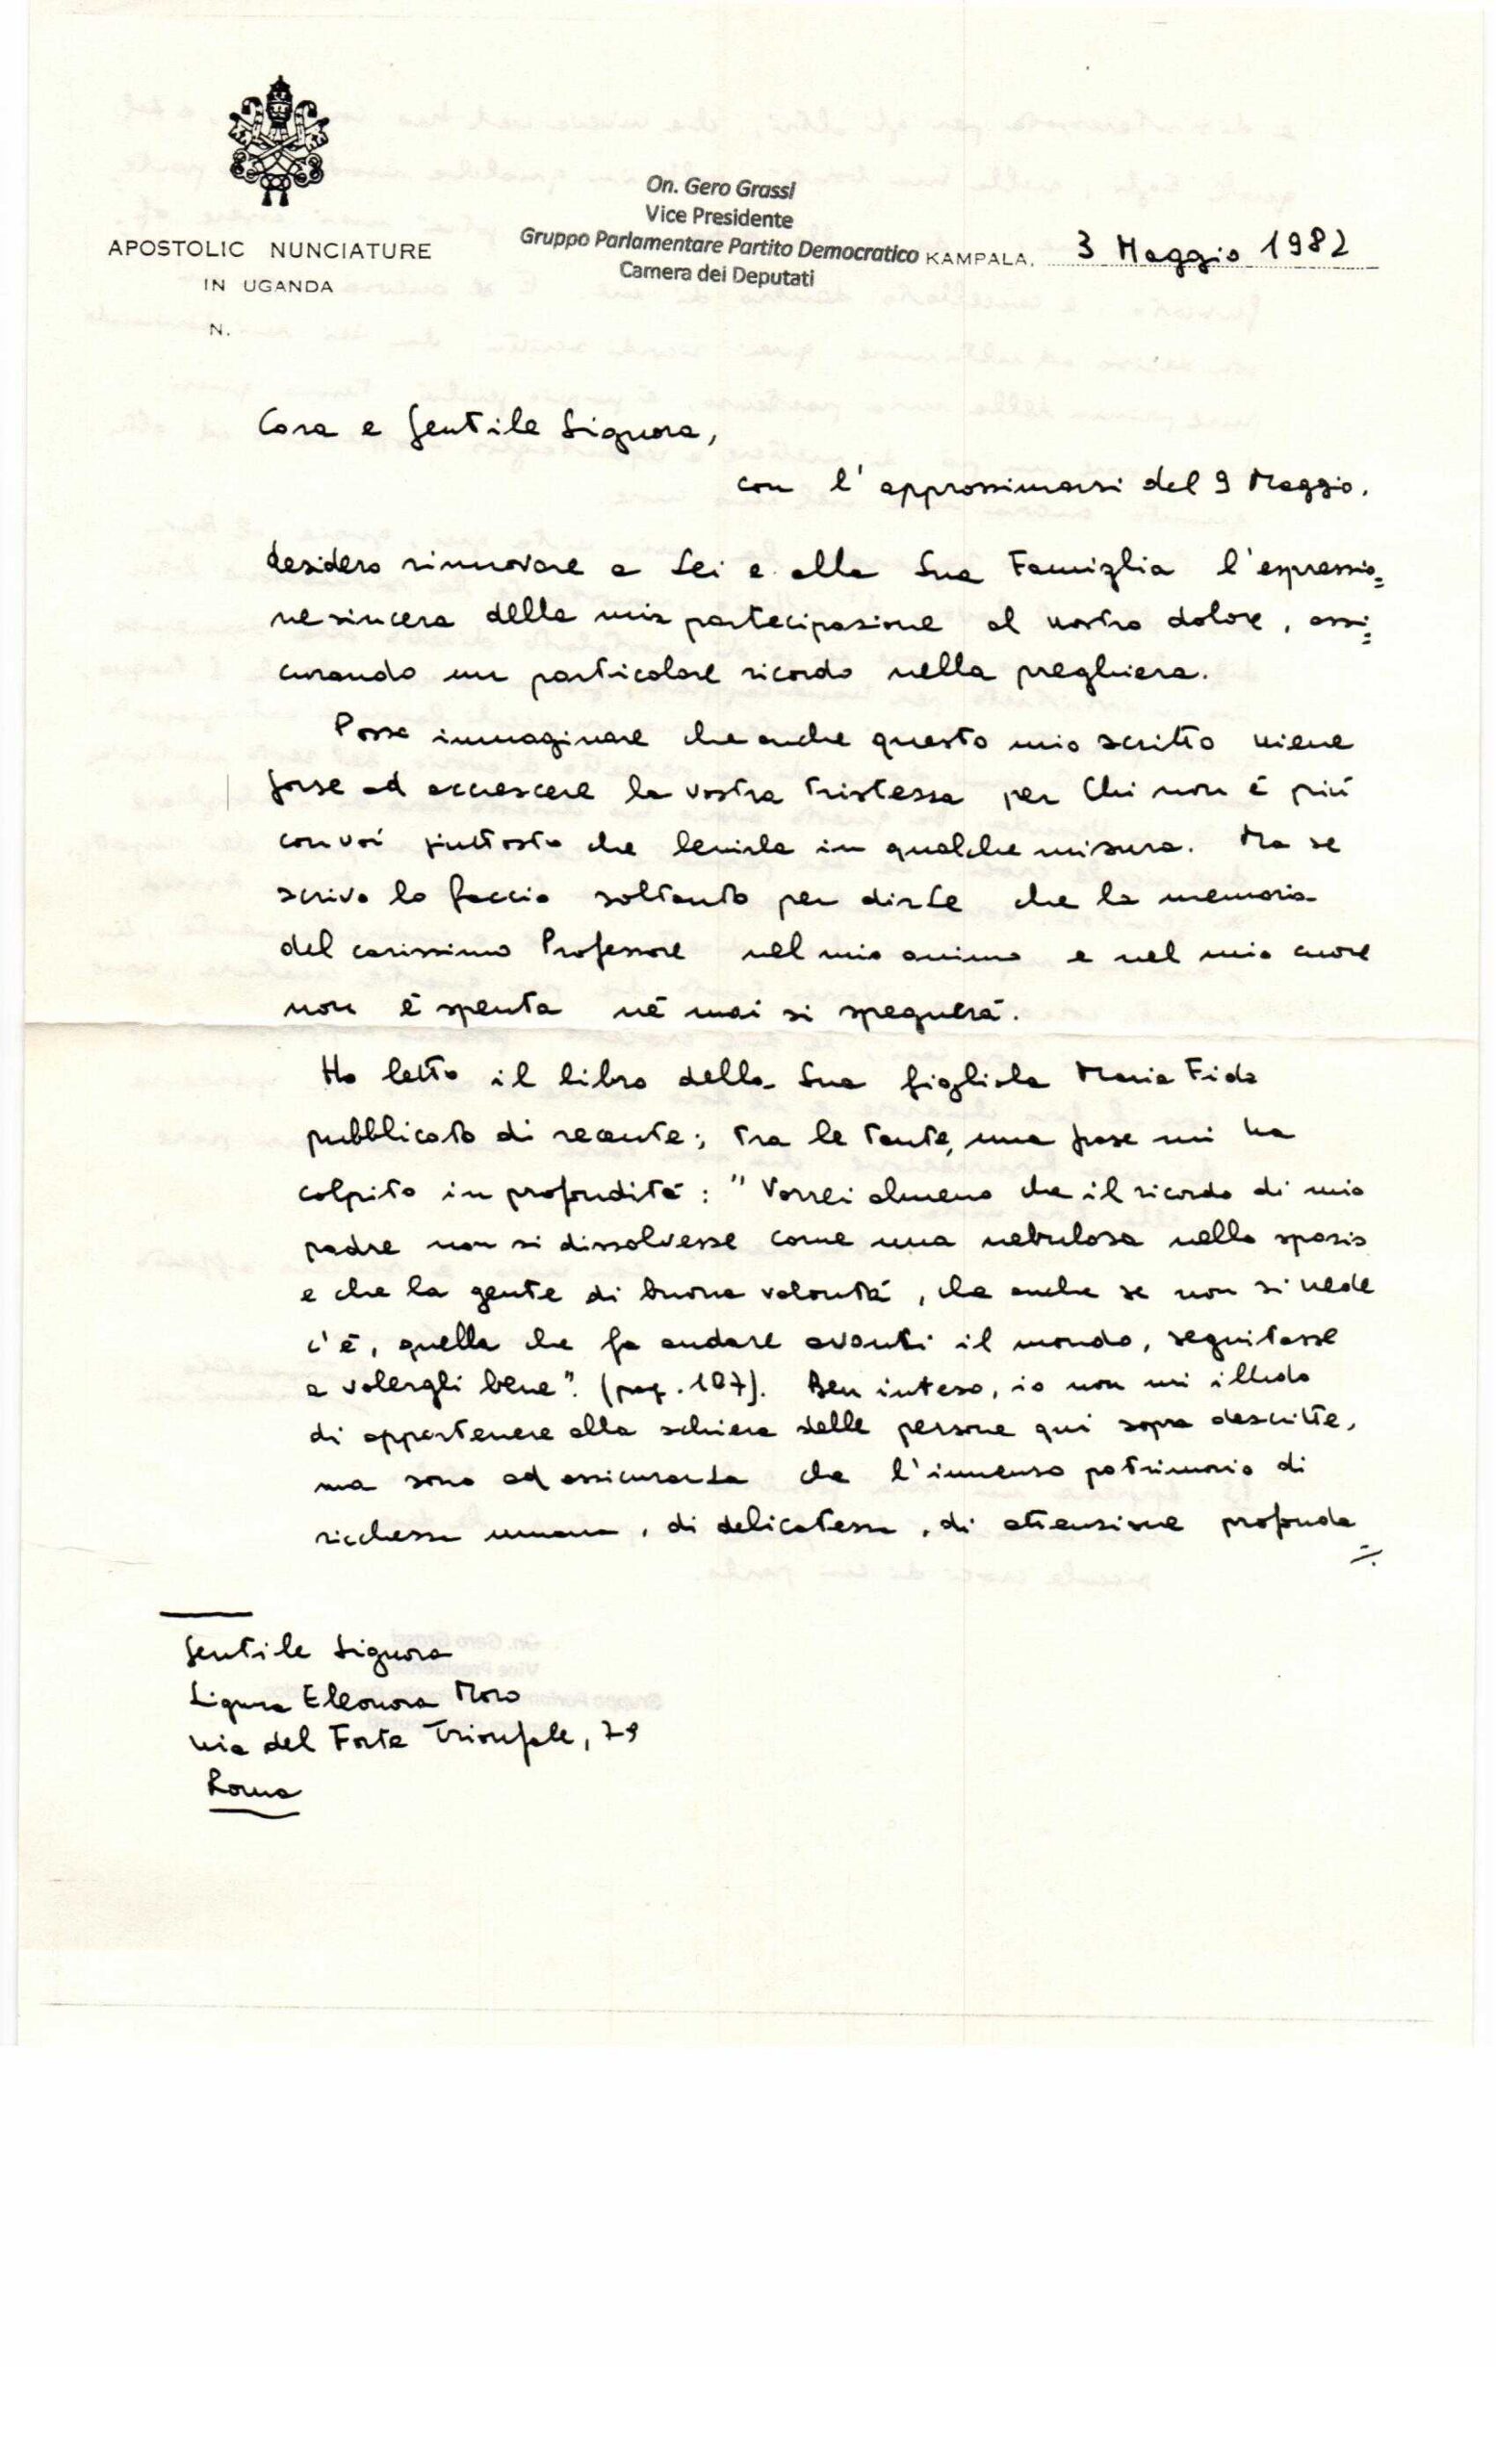 APOSTOLIC NUNCIATURE
IN UGANDA
N.
On. Gero Grassi
Vice Presidente
Gruppo Parlamentare Partito Democratico
Camera dei Deputati
KAMPALA, 3 Maggio 1982
Cara e gentile Signora,
con l'approssimarsi del 9 Maggio,
desidero rinnovare a Lei e alla Sua Famiglia l'espressio=
ne sincera della mia partecipazione al vostro dolore, assi=
curando un particolare ricordo nella preghiera.
Posso immaginare che anche questo mio scritto viene
forse ad accrescere la vostra tristezza per Chi non é piú
con voi piuttosto che lenirla in qualche misura. Ma se
scrivo lo faccio soltanto per dirLe che la memoria
del carissimo Professore nel mio animo e nel mio cuore
non é spenta né mai si spegnerá.
Ho letto il libro della Sua figliola Maria Fida
pubblicato di recente; tra le tante, una frase mi ha
colpito in profonditá: "Vorrei almeno che il ricordo di mio
padre non si dissolvesse come una nebulosa nello spazio
e che la gente di buona volontá, che anche se non si vede
c'é, quella che fa andare avanti il mondo, seguitasse
a volergli bene". (pag. 107). Ben inteso, io non mi illudo
di appartenere alla schiera delle persone qui sopra descritte,
ma sono ad assicurarLa che l'immenso patrimonio di
ricchezza umana, di delicatezza, di attenzione profonda
./.
Gentile Signora
Signora Eleonora Moro
Via del Forte Trionfale, 79
Roma